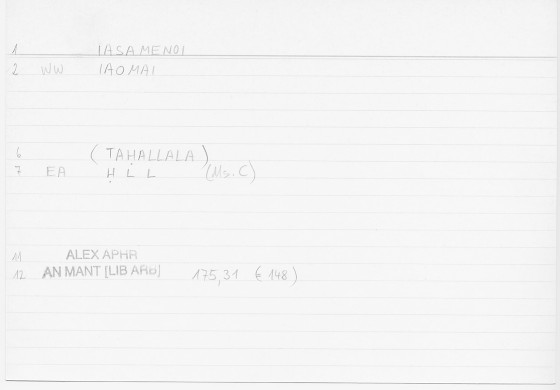 1 IASAMENOI
2 WW IAOMAI
6 (TAḤALLALA)
7 EA Ḥ L L (Ms. C)
11 ALEX APHR
12 AN MANT [LIB ARB] 175,31 (148)